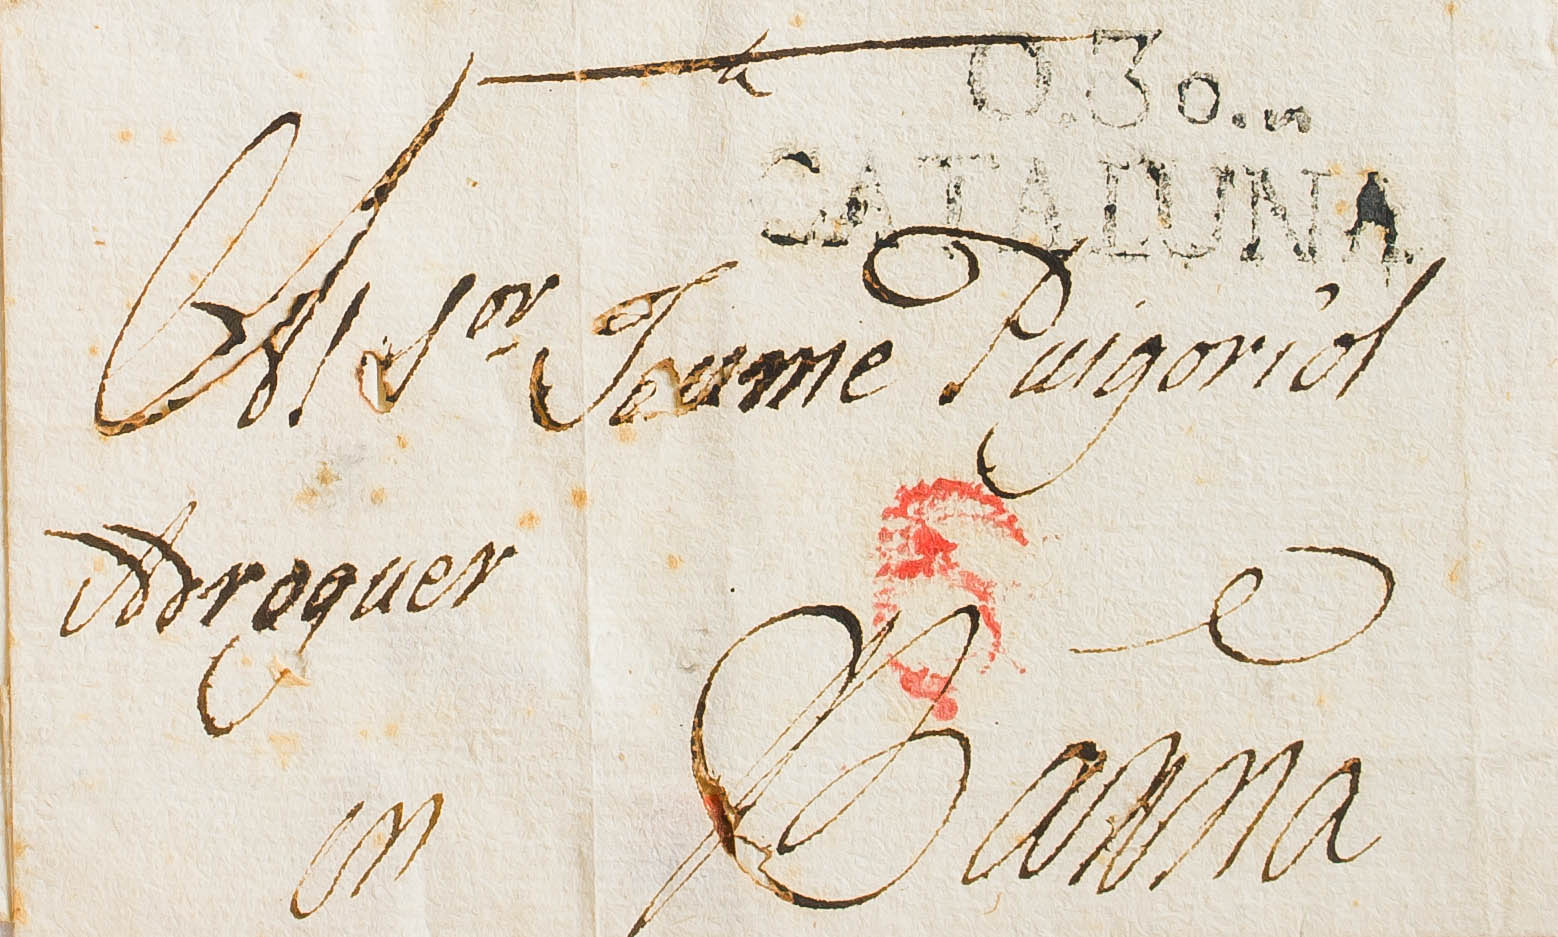 O.3o..n
CATALUNA.
Al Sor Jaume Puigoriol
Droguer
en Barna
6